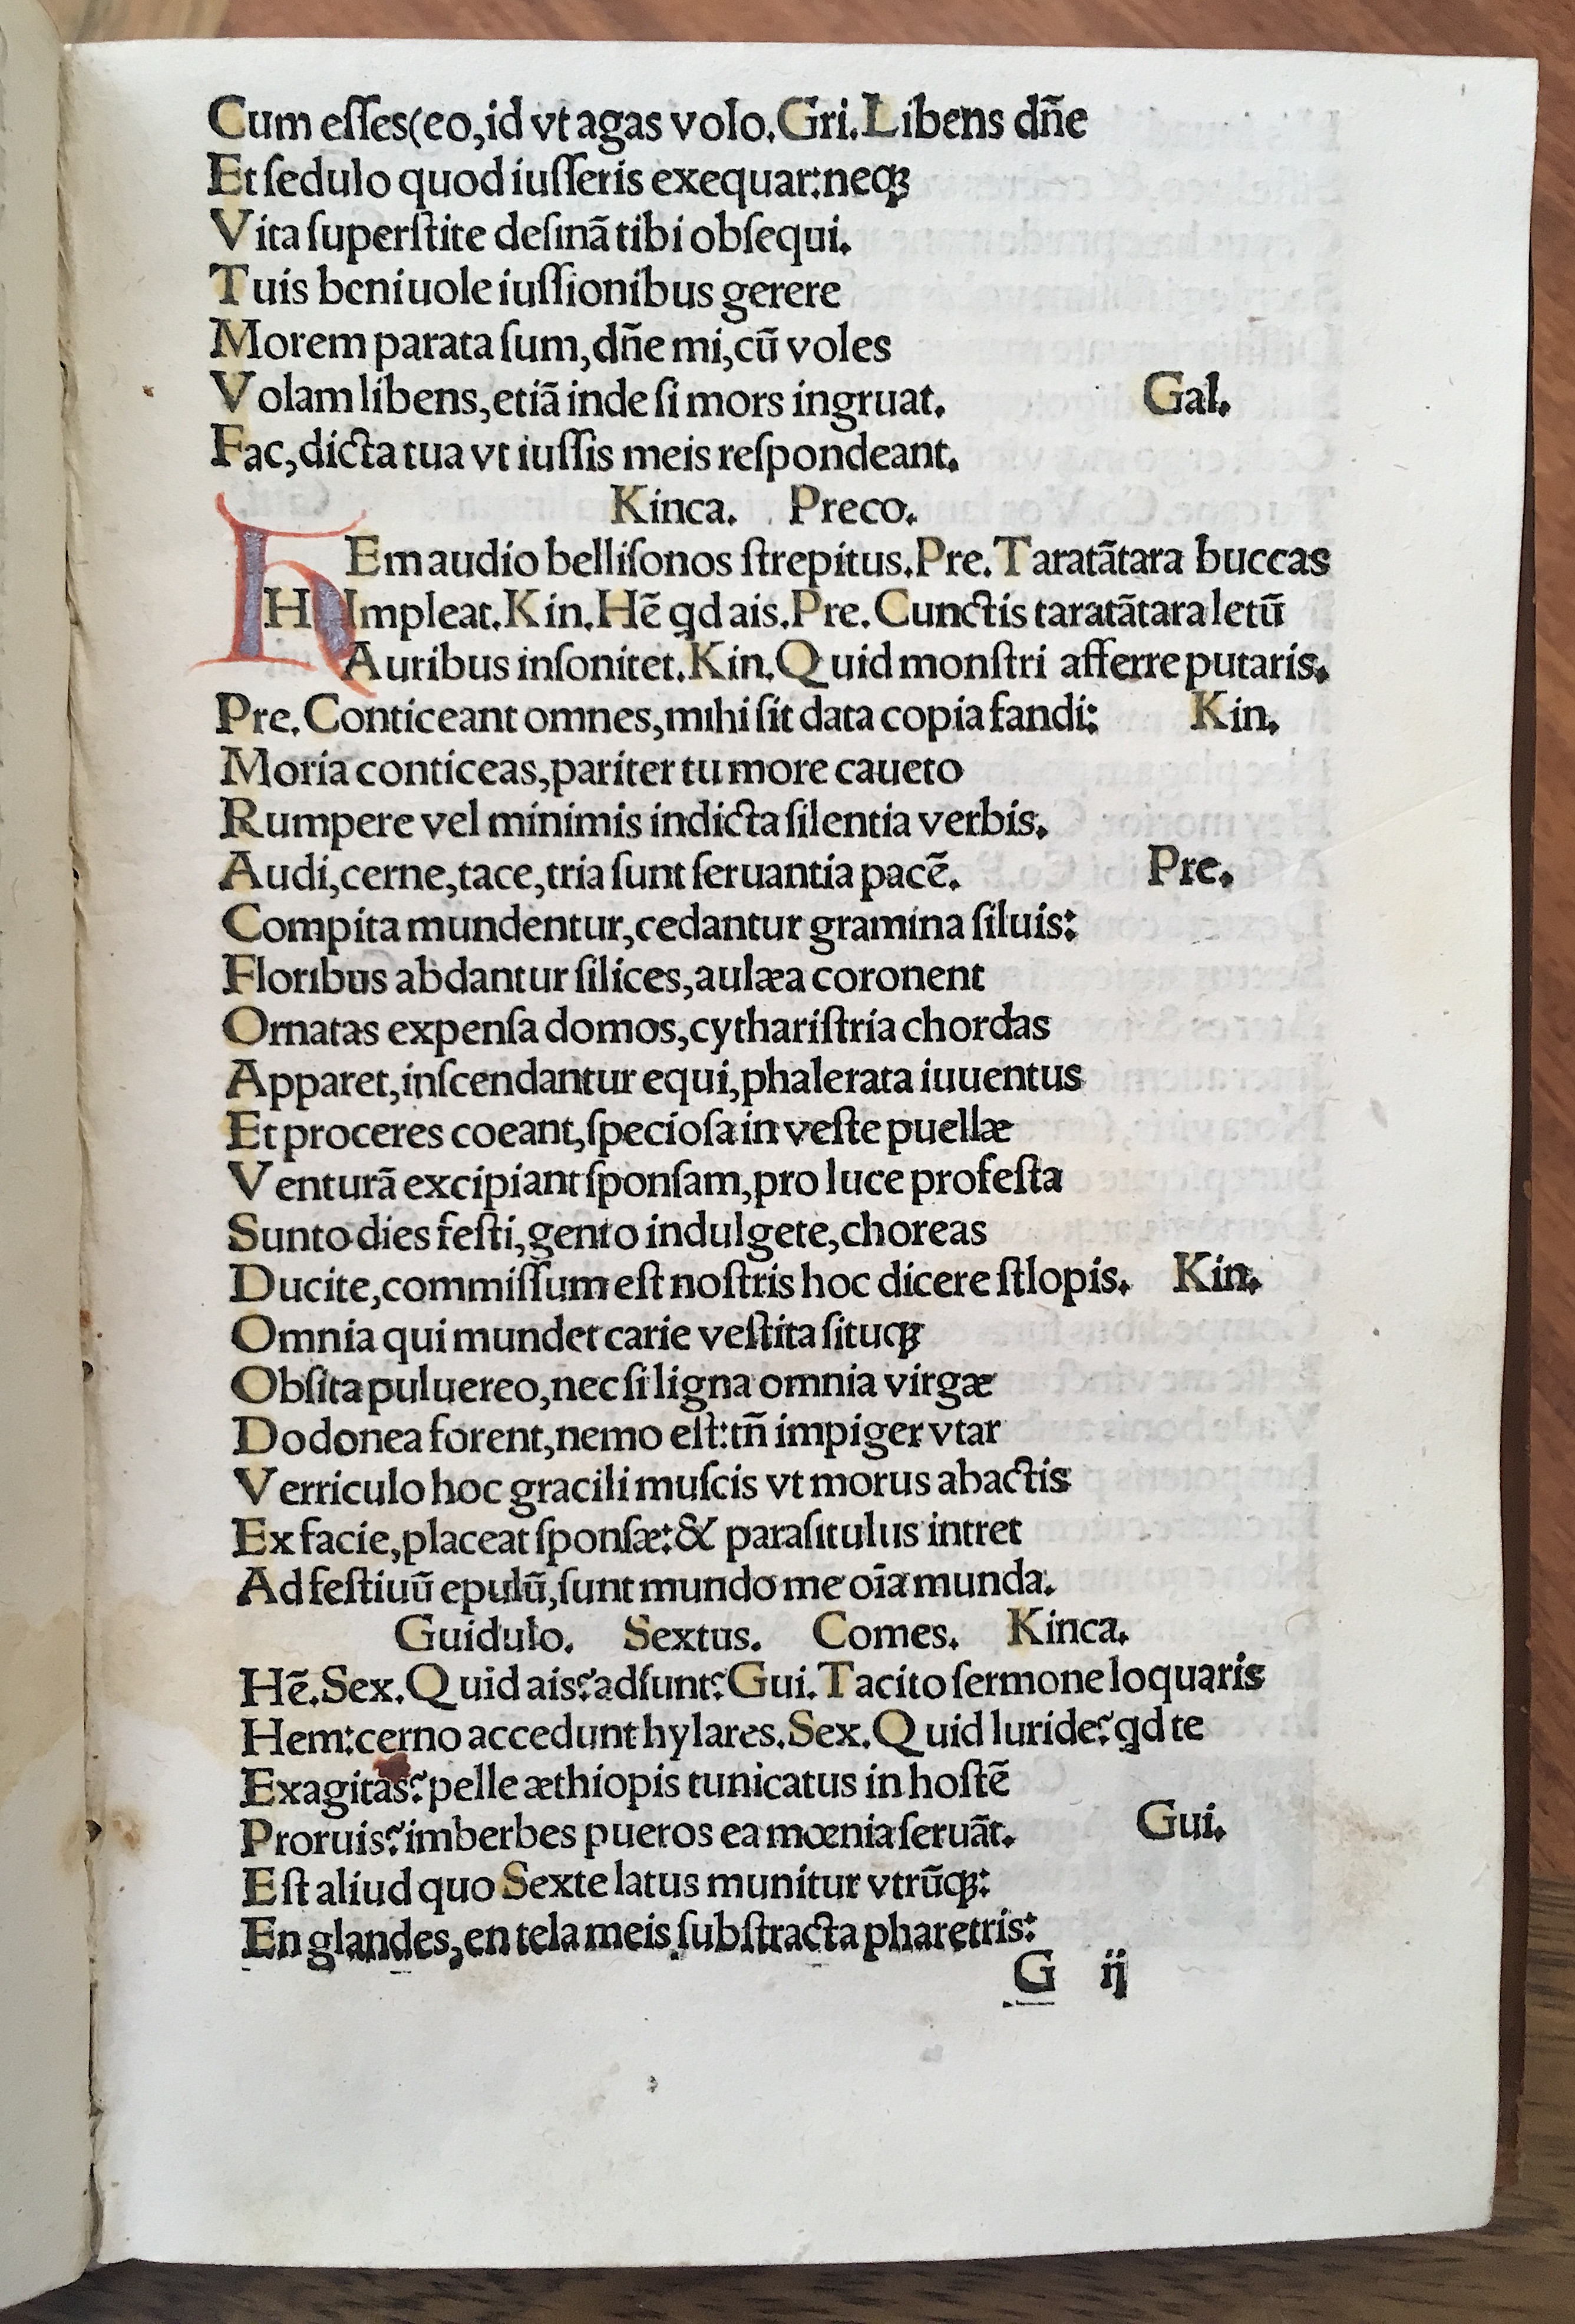 Cum eſſes(eo,id vt agas volo.Gri.Libens dñe
Et ſedulo quod iuſſeris exequar:neqꝫ
Vita ſuperſtite deſinã tibi obſequi.
Tuis bcniuole iuſſionibus gerere
Morem parata ſum,dñe mi,cũ voles
Volam libens,etiã inde ſi mors ingruat. Gal.
Fac,dicta tua vt iuſſis meis reſpondeant.
Kinca. Preco.
Em audio belliſonos ſtrepitus.Pre.Taratãtara buccas
H Impleat.Kin.Hẽ qd ais.Pre.Cunctis taratãtara letũ
Auribus inſonitet.Kin.Quid monſtri afferre putaris.
Pre.Conticeant omnes,mihi ſit data copia fandi: Kin.
Moria conticeas,pariter tu more caueto
Rumpere vel minimis indicta ſilentia verbis.
Audi,cerne,tace,tria ſunt ſeruantia pacẽ. Pre.
Compita mundentur,cedantur gramina ſiluis:
Floribus abdantur ſilices,aulæa coronent
Ornatas expenſa domos,cythariſtria chordas
Apparet,inſcendantur equi,phalerata iuuentus
Et proceres coeant,ſpecioſa in veſte puellæ
Venturã excipiant ſponſam,pro luce profeſta
Sunto dies feſti,gento indulgete,choreas
Ducite,commiſſum eſt noſtris hoc dicere ſtlopis. Kin.
Omnia qui mundet carie veſtita ſituqꝫ
Obſita puluereo,nec ſi ligna omnia virgæ
Dodonea forent,nemo eſt:tñ impiger vtar
Verriculo hoc gracili muſcis vt morus abactis
Ex facie,placeat ſponſæ:& paraſitulus intret
Ad feſtiuũ epulũ,ſunt mundo me oĩa munda.
Guidulo. Sextus. Comes. Kinca.
Hẽ.Sex.Quid ais?adſunt?Gui.Tacito ſermone loquaris
Hem:cerno accedunt hylares.Sex.Quid luride?qd te
Exagitas?pelle æthiopis tunicatus in hoſtẽ
Proruis?imberbes pueros ea mœnia ſeruãt. Gui.
Eſt aliud quo Sexte latus munitur vtrũqꝫ:
En glandes,en tela meis ſubſtracta pharetris:
G ij